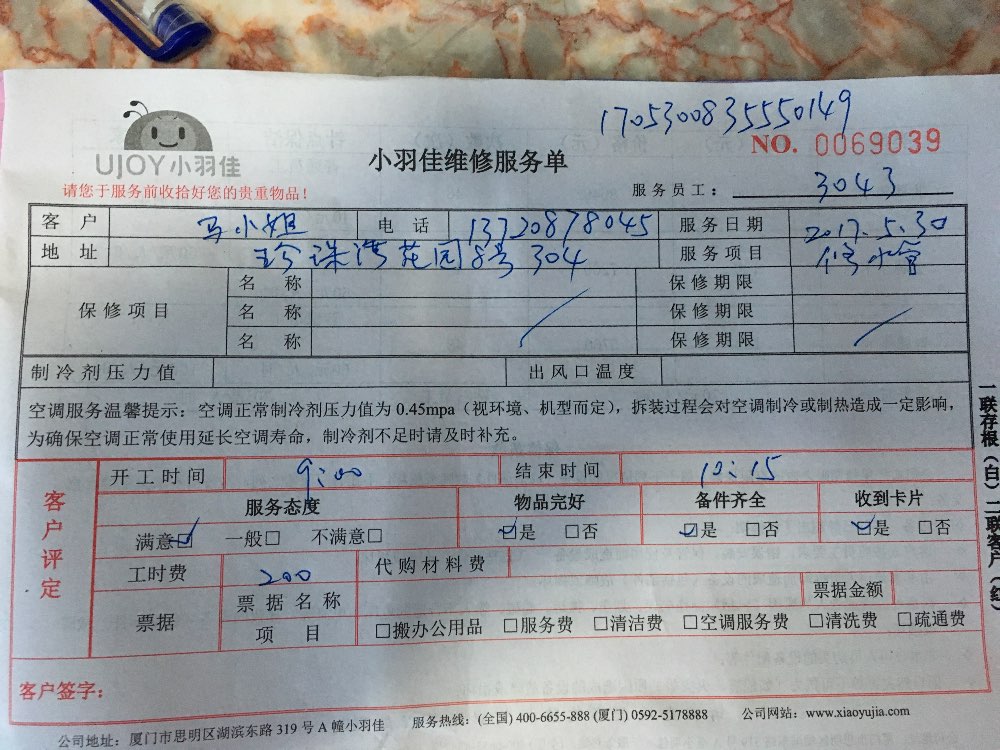 1705300835550149
UJOY小羽佳
小羽佳维修服务单
NO. 0069039
请您于服务前收拾好您的贵重物品！
服务员工： 3043
客户 马小姐 电话 13720878045 服务日期 2017.5.30
地址 珍珠湾花园8号304 服务项目 修水管
保修项目 名称 保修期限
名称 保修期限
名称 保修期限
制冷剂压力值 出风口温度
空调服务温馨提示：空调正常制冷剂压力值为 0.45mpa（视环境、机型而定），拆装过程会对空调制冷或制热造成一定影响，
为确保空调正常使用延长空调寿命，制冷剂不足时请及时补充。
客户评定
开工时间 9:00 结束时间 10:15
服务态度 物品完好 备件齐全 收到卡片
满意☑ 一般□ 不满意□ ☑是 □否 ☑是 □否 ☑是 □否
工时费 200 代购材料费
票据 票据名称 票据金额
项目 □搬办公用品 □服务费 □清洁费 □空调服务费 □清洗费 □疏通费
客户签字：
公司地址：厦门市思明区湖滨东路 319 号 A 幢小羽佳 服务热线：(全国) 400-6655-888 (厦门) 0592-5178888 公司网站：www.xiaoyujia.com
一联存根（白）二联客户（红）